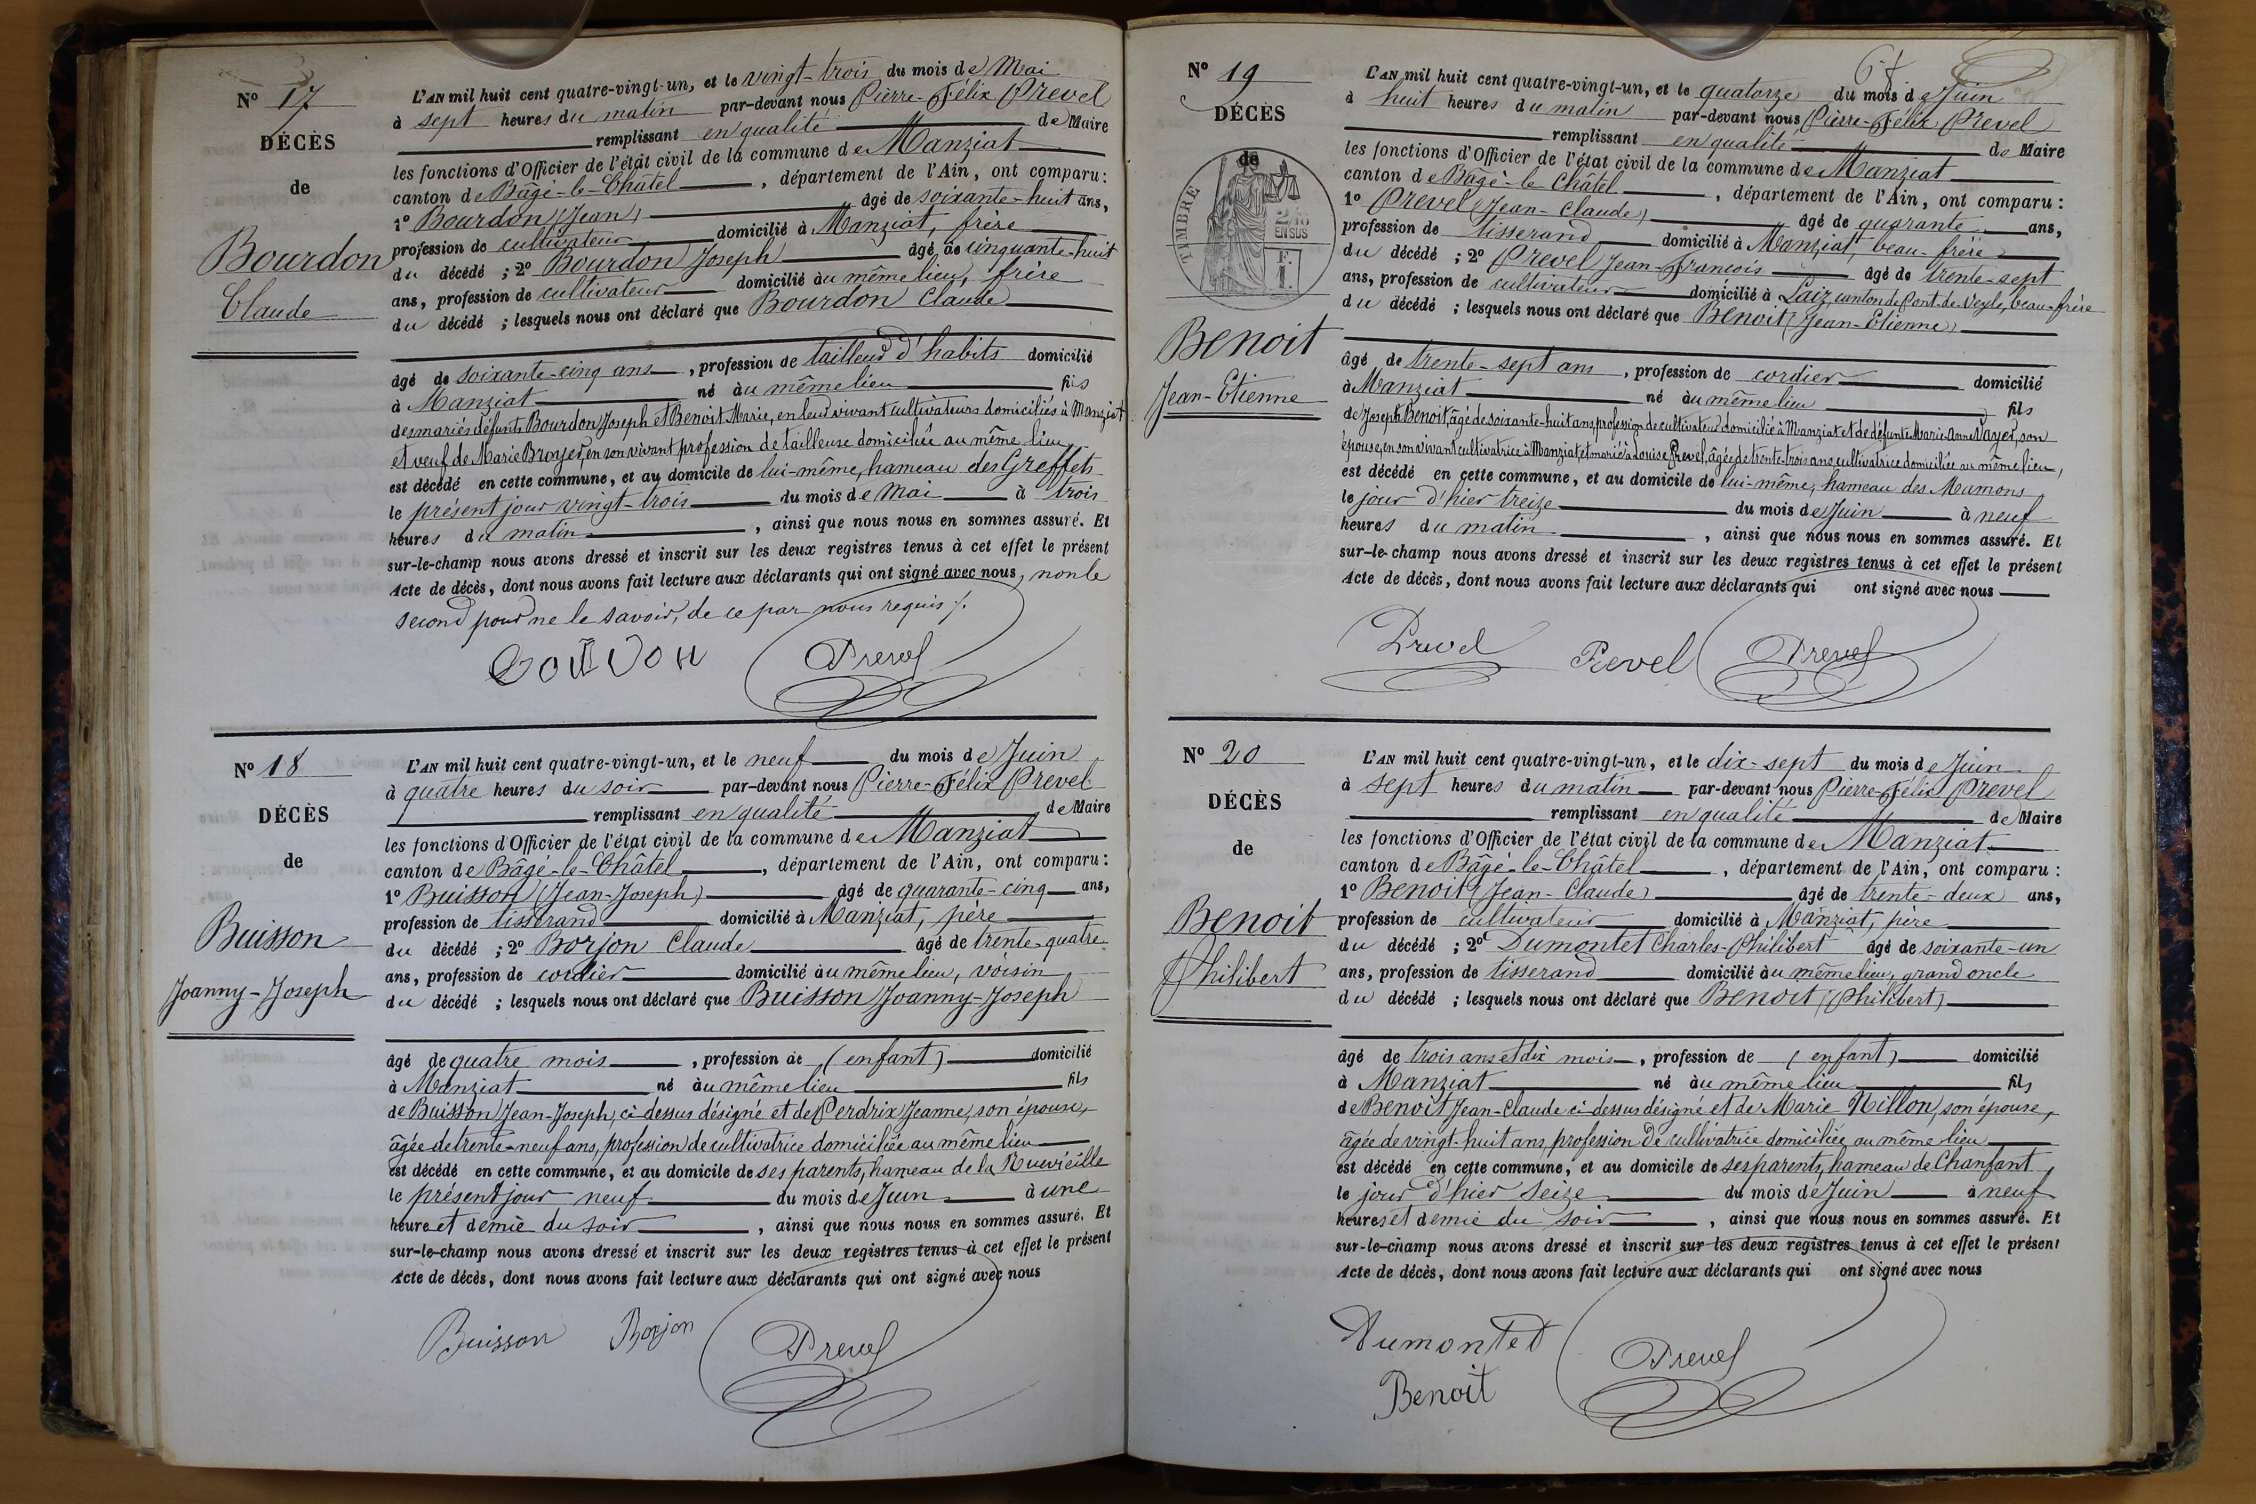 N° 17
DÉCÈS
de
Bourdon
Claude
L'AN mil huit cent quatre-vingt-un, et le vingt-trois du mois de Mai
à sept heures du matin par-devant nous Pierre-Félix Prevel
remplissant en qualité de Maire
les fonctions d'Officier de l'état civil de la commune de Manziat
canton de Bâgé-le-Châtel, département de l'Ain, ont comparu:
1° Bourdon (Jean) âgé de soixante-huit ans,
profession de cultivateur domicilié à Manziat, frère
du décédé ; 2° Bourdon Joseph âgé de cinquante-huit
ans, profession de cultivateur domicilié au même lieu, frère
du décédé ; lesquels nous ont déclaré que Bourdon Claude
âgé de soixante-cinq ans, profession de tailleur d'habits domicilié
à Manziat né au même lieu fils
des mariés défunts Bourdon Joseph et Benoit Marie, en leur vivant cultivateurs domiciliés à Manziat
et veuf de Marie Broyer, en son vivant profession de tailleuse domiciliée au même lieu
est décédé en cette commune, et au domicile de lui-même, hameau des Greffets
le présent jour vingt-trois du mois de Mai à trois
heures du matin, ainsi que nous nous en sommes assuré. Et
sur-le-champ nous avons dressé et inscrit sur les deux registres tenus à cet effet le présent
Acte de décès, dont nous avons fait lecture aux déclarants qui ont signé avec nous, non le
second pour ne le savoir, de ce par nous requis ./.
Prevel
N° 18
DÉCÈS
de
Buisson
Joanny-Joseph
L'AN mil huit cent quatre-vingt-un, et le neuf du mois de Juin
à quatre heures du soir par-devant nous Pierre-Félix Prevel
remplissant en qualité de Maire
les fonctions d'Officier de l'état civil de la commune de Manziat
canton de Bâgé-le-Châtel, département de l'Ain, ont comparu:
1° Buisson (Jean-Joseph) âgé de quarante-cinq ans,
profession de tisserand domicilié à Manziat, père
du décédé ; 2° Borjon Claude âgé de trente-quatre
ans, profession de cordier domicilié au même lieu, voisin
du décédé ; lesquels nous ont déclaré que Buisson Joanny-Joseph
âgé de quatre mois, profession de (enfant) domicilié
à Manziat né au même lieu fils
de Buisson Jean-Joseph, ci-dessus désigné et de Perdrix Jeanne, son épouse,
âgée de trente-neuf ans, profession de cultivatrice domiciliée au même lieu
est décédé en cette commune, et au domicile de ses parents, hameau de la Ruevieille
le présent jour neuf du mois de Juin à une
heure et demie du soir, ainsi que nous nous en sommes assuré. Et
sur-le-champ nous avons dressé et inscrit sur les deux registres tenus à cet effet le présent
Acte de décès, dont nous avons fait lecture aux déclarants qui ont signé avec nous
Buisson Borjon Prevel
N° 19
DÉCÈS
de
TIMBRE
2/10
EN SUS
Benoit
Jean-Etienne
L'AN mil huit cent quatre-vingt-un, et le quatorze du mois de Juin
à huit heures du matin par-devant nous Pierre-Félix Prevel
remplissant en qualité de Maire
les fonctions d'Officier de l'état civil de la commune de Manziat
canton de Bâgé-le-Châtel, département de l'Ain, ont comparu:
1° Prevel (Jean-Claude) âgé de quarante ans,
profession de tisserand domicilié à Manziat, beau-frère
du décédé ; 2° Prevel Jean-François âgé de trente-sept
ans, profession de cultivateur domicilié à Laiz canton de Pont-de-Veyle, beau-frère
du décédé ; lesquels nous ont déclaré que Benoit (Jean-Etienne)
âgé de trente-sept ans, profession de cordier domicilié
à Manziat né au même lieu fils
de Joseph Benoit, âgé de soixante-huit ans, profession de cultivateur domicilié à Manziat et de défunte Marie-Anne Vayer, son
épouse, en son vivant cultivatrice à Manziat, et marié à Louise Prevel, âgée de trente-trois ans, cultivatrice domiciliée au même lieu,
est décédé en cette commune, et au domicile de lui-même, hameau des Mamons
le jour d'hier treize du mois de Juin à neuf
heures du matin, ainsi que nous nous en sommes assuré. Et
sur-le-champ nous avons dressé et inscrit sur les deux registres tenus à cet effet le présent
Acte de décès, dont nous avons fait lecture aux déclarants qui ont signé avec nous
Prevel Prevel Prevel
N° 20
DÉCÈS
de
Benoit
Philibert
L'AN mil huit cent quatre-vingt-un, et le dix-sept du mois de Juin
à sept heures du matin par-devant nous Pierre-Félix Prevel
remplissant en qualité de Maire
les fonctions d'Officier de l'état civil de la commune de Manziat
canton de Bâgé-le-Châtel, département de l'Ain, ont comparu:
1° Benoit (Jean-Claude) âgé de trente-deux ans,
profession de cultivateur domicilié à Manziat, père
du décédé ; 2° Dumontet Charles-Philibert âgé de soixante-un
ans, profession de tisserand domicilié au même lieu, grand oncle
du décédé ; lesquels nous ont déclaré que Benoit (Philibert)
âgé de trois ans et dix mois, profession de (enfant) domicilié
à Manziat né au même lieu fils
de Benoit Jean-Claude ci-dessus désigné et de Marie Nillon, son épouse,
âgée de vingt-huit ans, profession de cultivatrice domiciliée au même lieu
est décédé en cette commune, et au domicile de ses parents, hameau de Chanfant
le jour d'hier seize du mois de Juin à neuf
heures et demie du soir, ainsi que nous nous en sommes assuré. Et
sur-le-champ nous avons dressé et inscrit sur les deux registres tenus à cet effet le présent
Acte de décès, dont nous avons fait lecture aux déclarants qui ont signé avec nous
Dumontet Prevel
Benoit